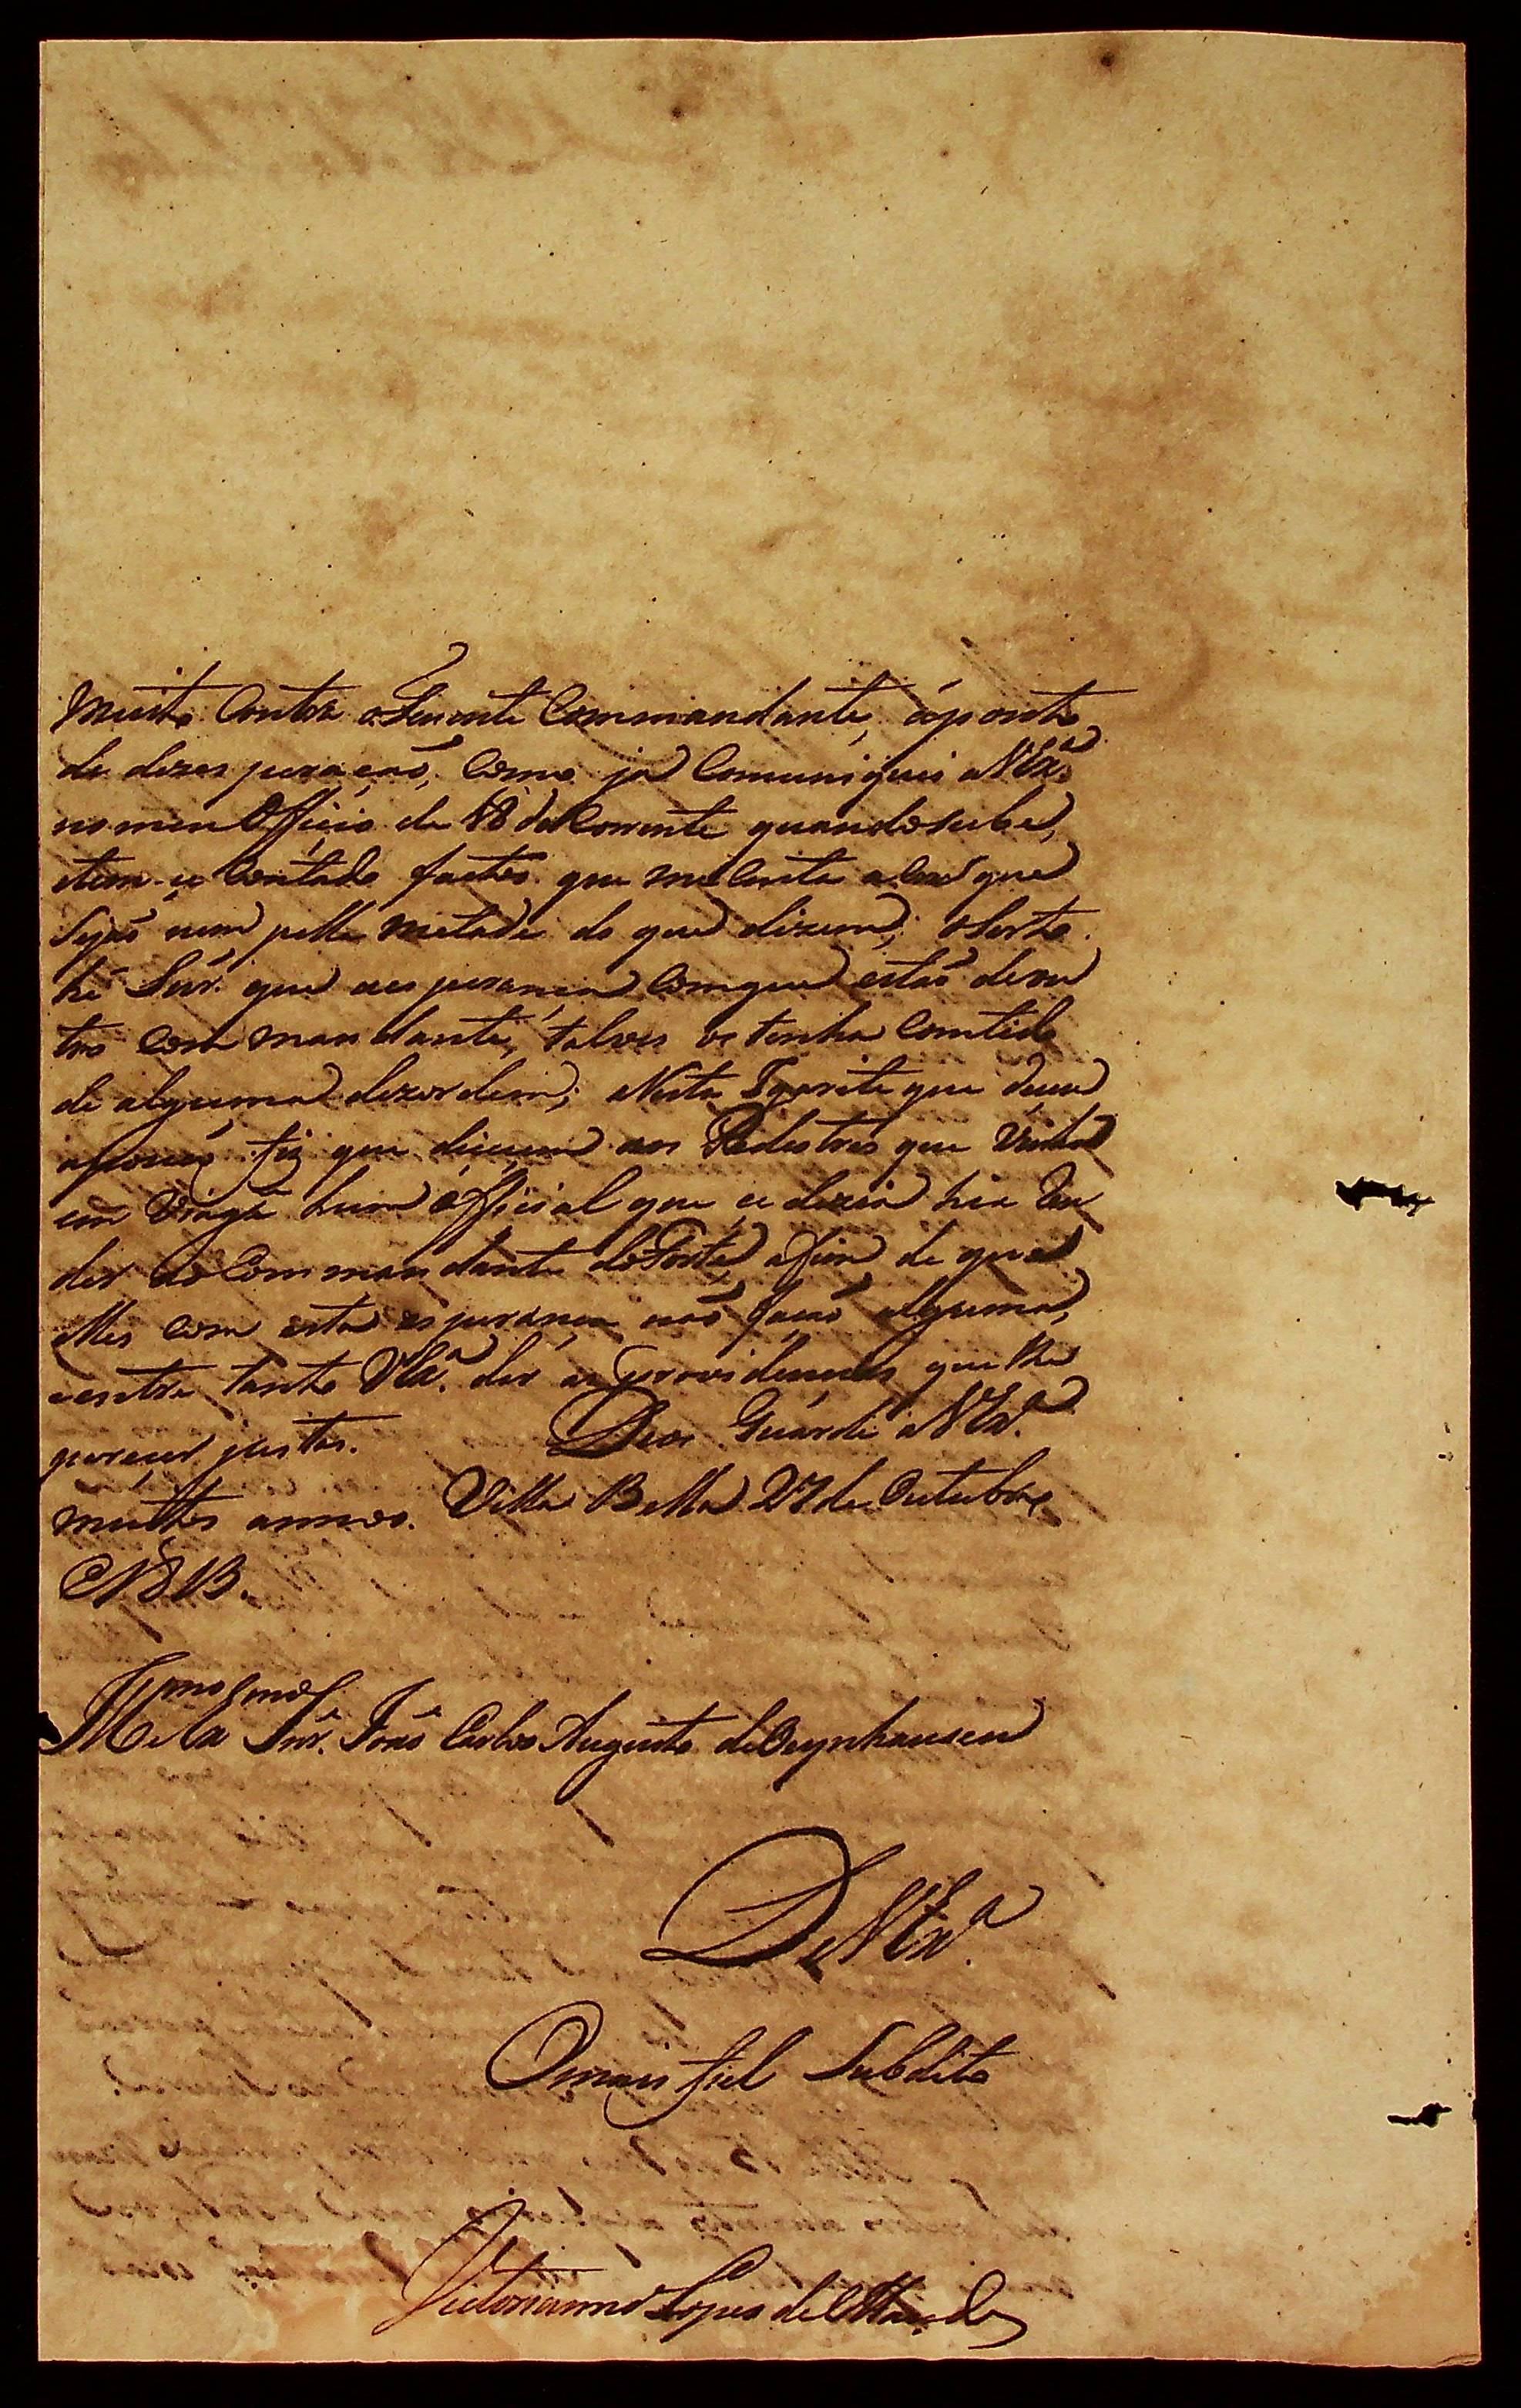 muito contra o Tenente Commandante, á ponto
de dezesperaçaõ, como já Comuniquei a V Exª.
no meu Officio de 18 do Corrente quando soube,
e tem-se Contado factos que me Custa a crer que
Sejaõ nem pella metade do que dizem; o Certo
hé Snr. que a esperança com que estaõ de ou
tro Commandante, talves os tenha Contido
de alguma dezordem; Nesta Igarite que deve
fiz que dicecem aos Pedestres que Vinha
em Viage hum Official que se dizia hia Ren
der ao Commandante do Forte, afim de que
elles com esta esperança naõ façaõ alguma,
e entre tanto V Exª. dar as providencias que lhe
parecer justas. Deos Guarde a V Exª.
muitos annos. Villa Bella 27 de Outubro
de 1813.
Illmo e Exmo Snr. Joaõ Carlos Augusto de Oeynhausen
De V Exª.
O mais fiel Subdito
Victorianno Lopes de Macedo